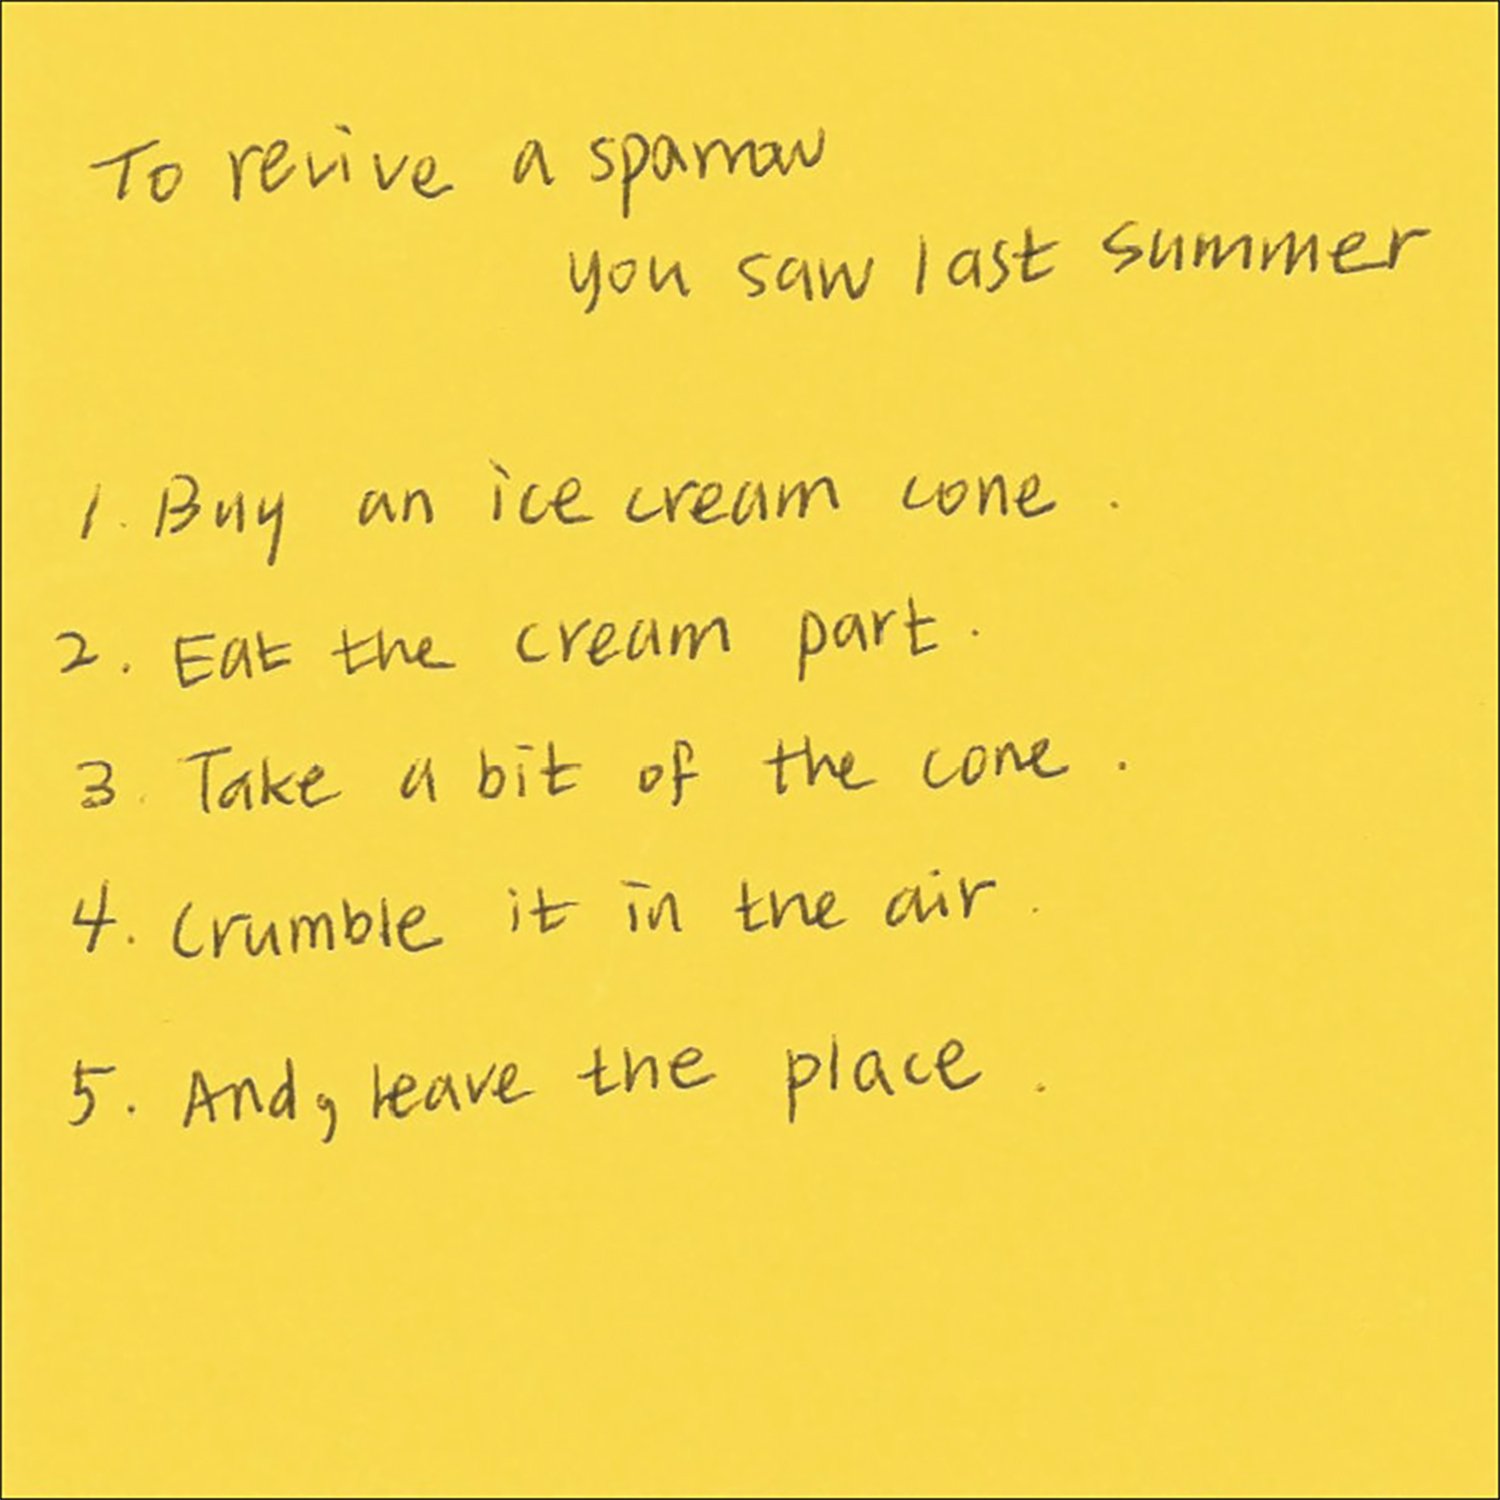 To revive a sparrow
you saw last summer
1. Buy an ice cream cone.
2. Eat the cream part.
3. Take a bit of the cone.
4. Crumble it in the air.
5. And, leave the place.